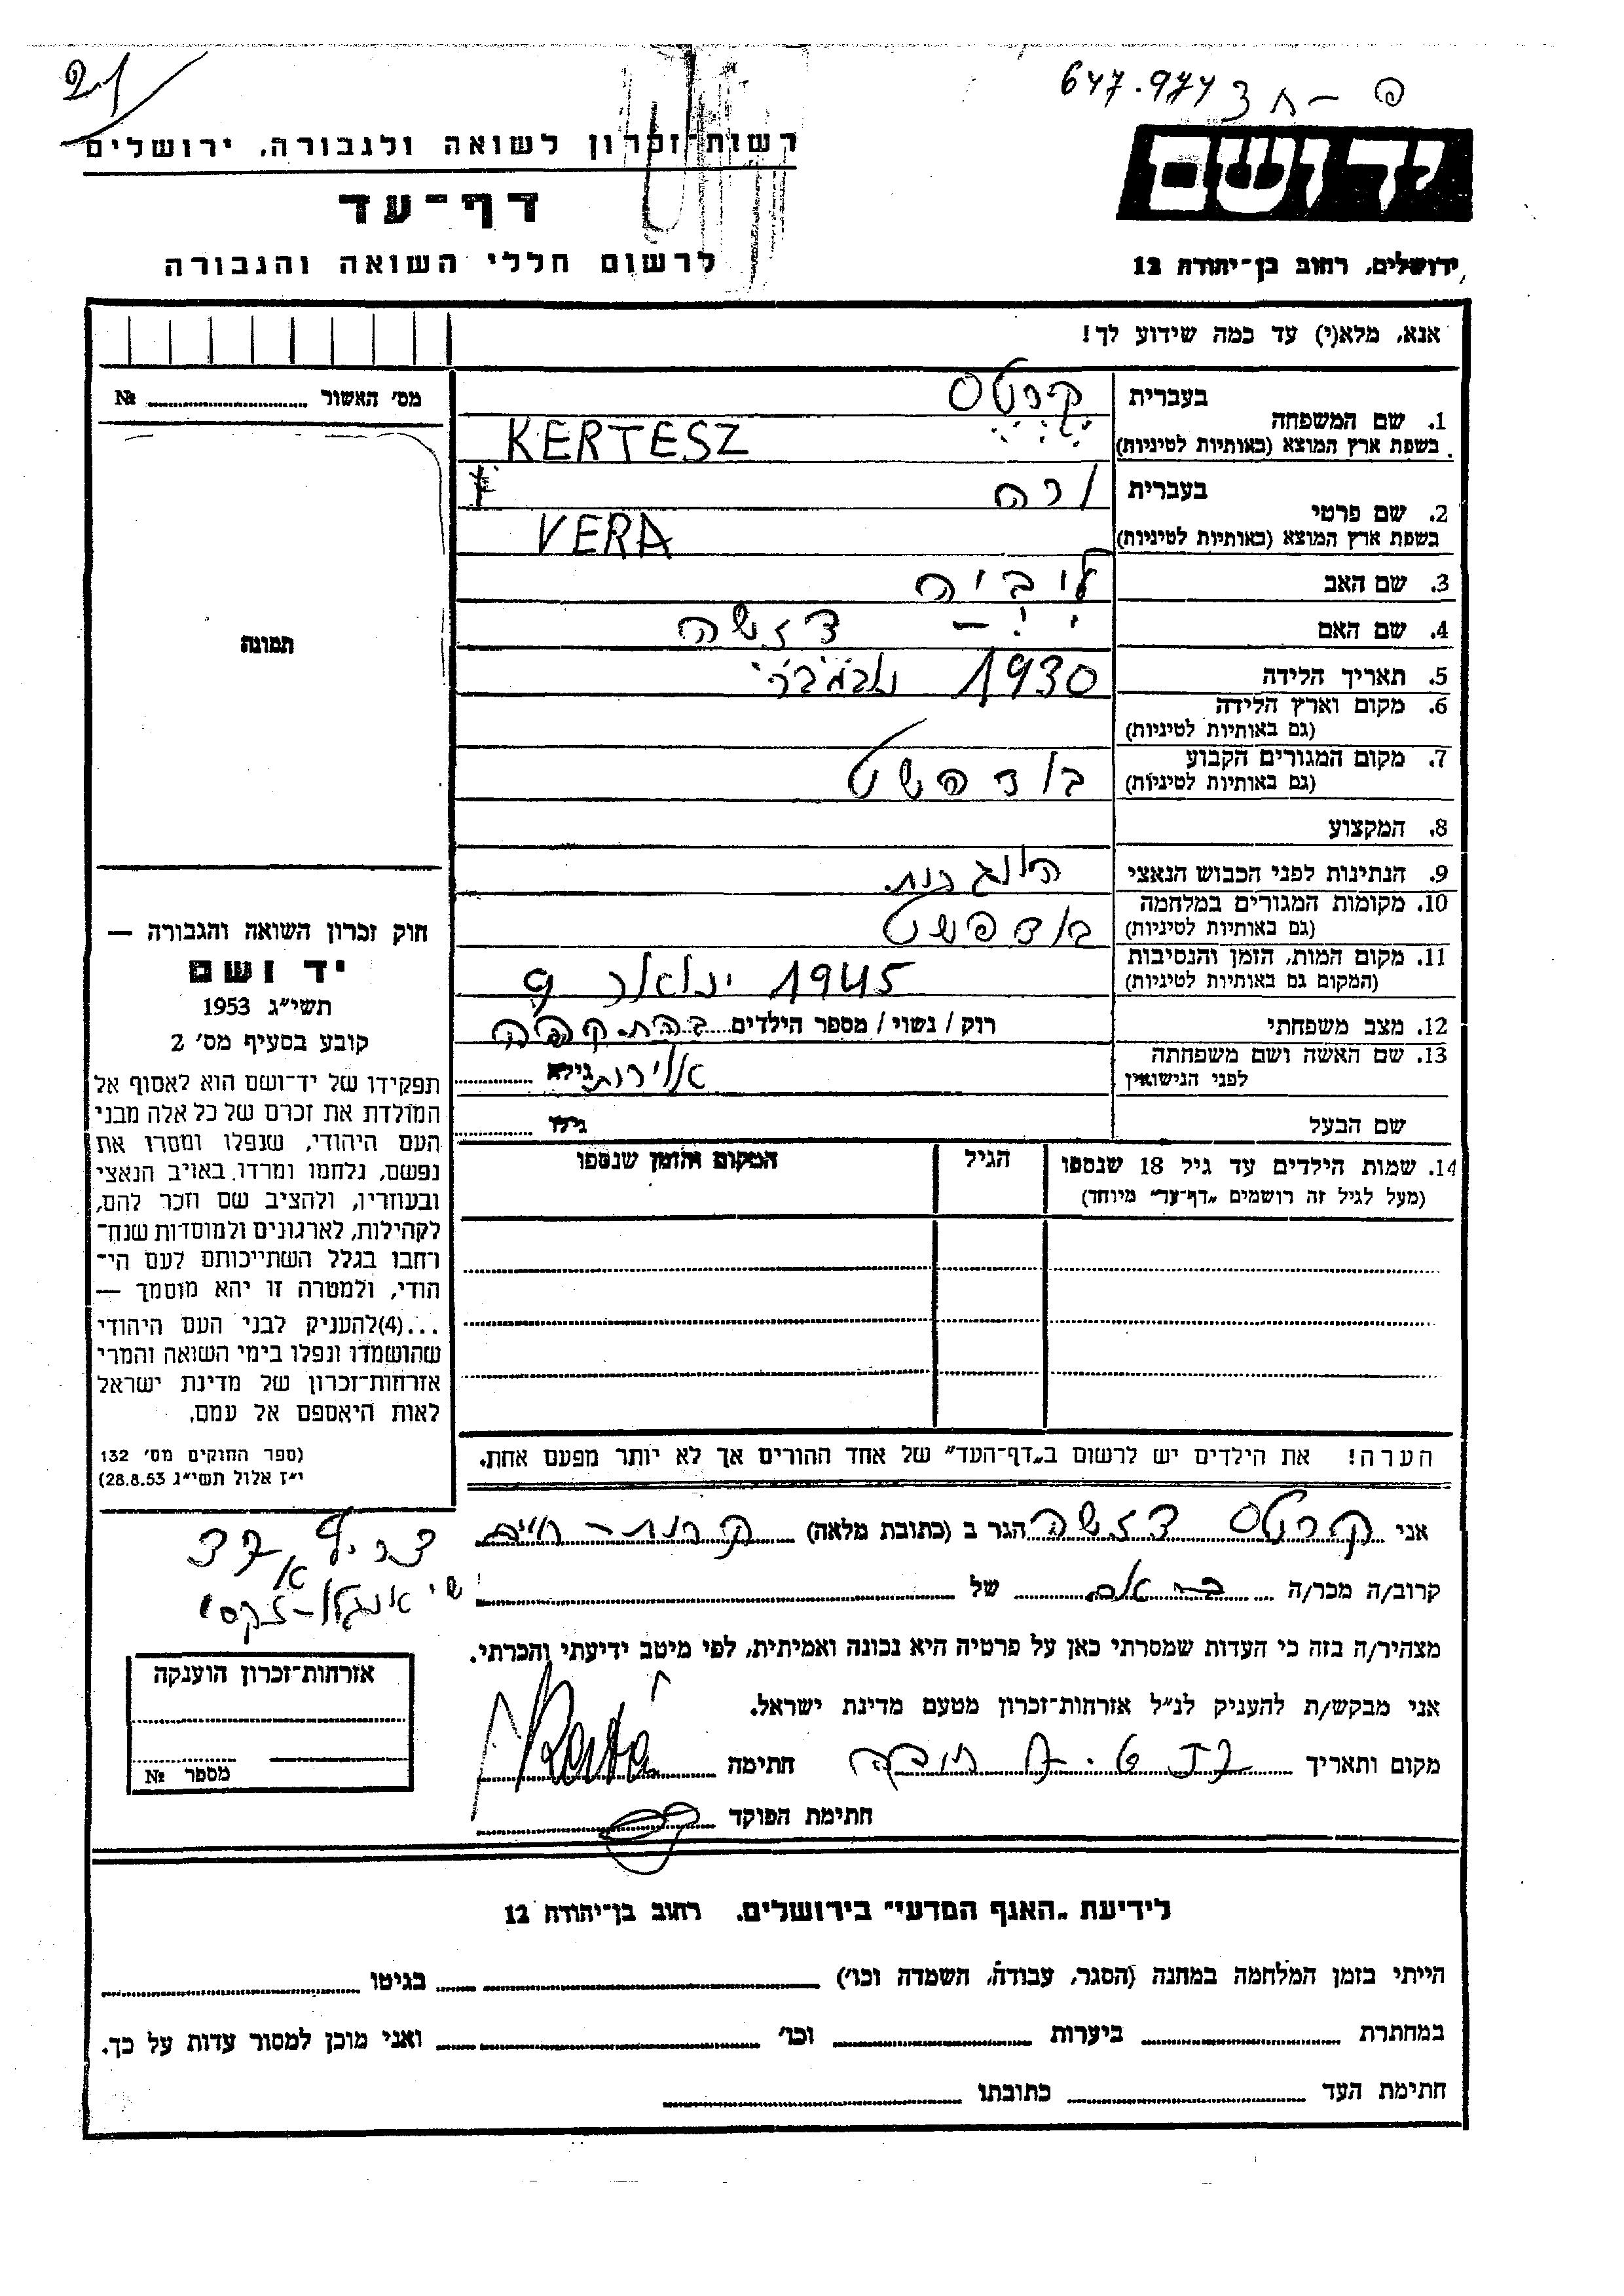 647.974
21
יד ושם
רשות־זכרון לשואה ולגבורה, ירושלים
דף־עד
לרשום חללי השואה והגבורה
ירושלים, רחוב בן־יהודה 12
אנא, מלא(י) עד כמה שידוע לך!
מס' האשור № 
בעברית קרטס
1. שם המשפחה
בשפת ארץ המוצא (באותיות לטיניות) KERTESZ
בעברית ורה
2. שם פרטי
בשפת ארץ המוצא (באותיות לטיניות) VERA
3. שם האב
4. שם האם
5. תאריך הלידה 1930
6. מקום וארץ הלידה
(גם באותיות לטיניות)
7. מקום המגורים הקבוע
(גם באותיות לטיניות)
8. המקצוע
9. הנתינות לפני הכבוש הנאצי
10. מקומות המגורים במלחמה
(גם באותיות לטיניות) בודפשט
11. מקום המות, הזמן והנסיבות
(המקום גם באותיות לטיניות) 1945 ינואר 9
12. מצב משפחתי רוק / נשוי / מספר הילדים
13. שם האשה ושם משפחתה
לפני הנישואין גילא
שם הבעל גילו
14. שמות הילדים עד גיל 18 שנספו הגיל המקום והזמן שנספו
(מעל לגיל זה רושמים „דף־עד" מיוחד)
הערה! את הילדים יש לרשום ב„דף־העד" של אחד ההורים אך לא יותר מפעם אחת.
תמונה
חוק זכרון השואה והגבורה —
יד ושם
תשי״ג 1953
קובע בסעיף מס' 2
תפקידו של יד־ושם הוא לאסוף אל
המולדת את זכרם של כל אלה מבני
העם היהודי, שנפלו ומסרו את
נפשם, נלחמו ומרדו באויב הנאצי
ובעוזריו, ולהציב שם וזכר להם,
לקהילות, לארגונים ולמוסדות שנח־
רחבו בגלל השתייכותם לעם הי־
הודי, ולמטרה זו יהא מוסמך —
...(4)להעניק לבני העם היהודי
שהושמדו ונפלו בימי השואה והמרי
אזרחות־זכרון של מדינת ישראל
לאות היאספם אל עמם.
(ספר החוקים מס' 132
י״ז אלול תשי״ג 28.8.53)
אני קרטס הגר ב (כתובת מלאה) קרית־חיים
צריף
קרוב/ה מכר/ה של
מצהיר/ה בזה כי העדות שמסרתי כאן על פרטיה היא נכונה ואמיתית, לפי מיטב ידיעתי והכרתי.
אני מבקש/ת להעניק לנ״ל אזרחות־זכרון מטעם מדינת ישראל.
מקום ותאריך חתימה
חתימת הפוקד
אזרחות־זכרון הוענקה
מספר №
לידיעת „האגף המדעי" בירושלים, רחוב בן־יהודה 12
הייתי בזמן המלחמה במחנה (הסגר, עבודה, השמדה וכו') בגיטו
במחתרת ביערות וכו' ואני מוכן למסור עדות על כך.
חתימת העד כתובתו